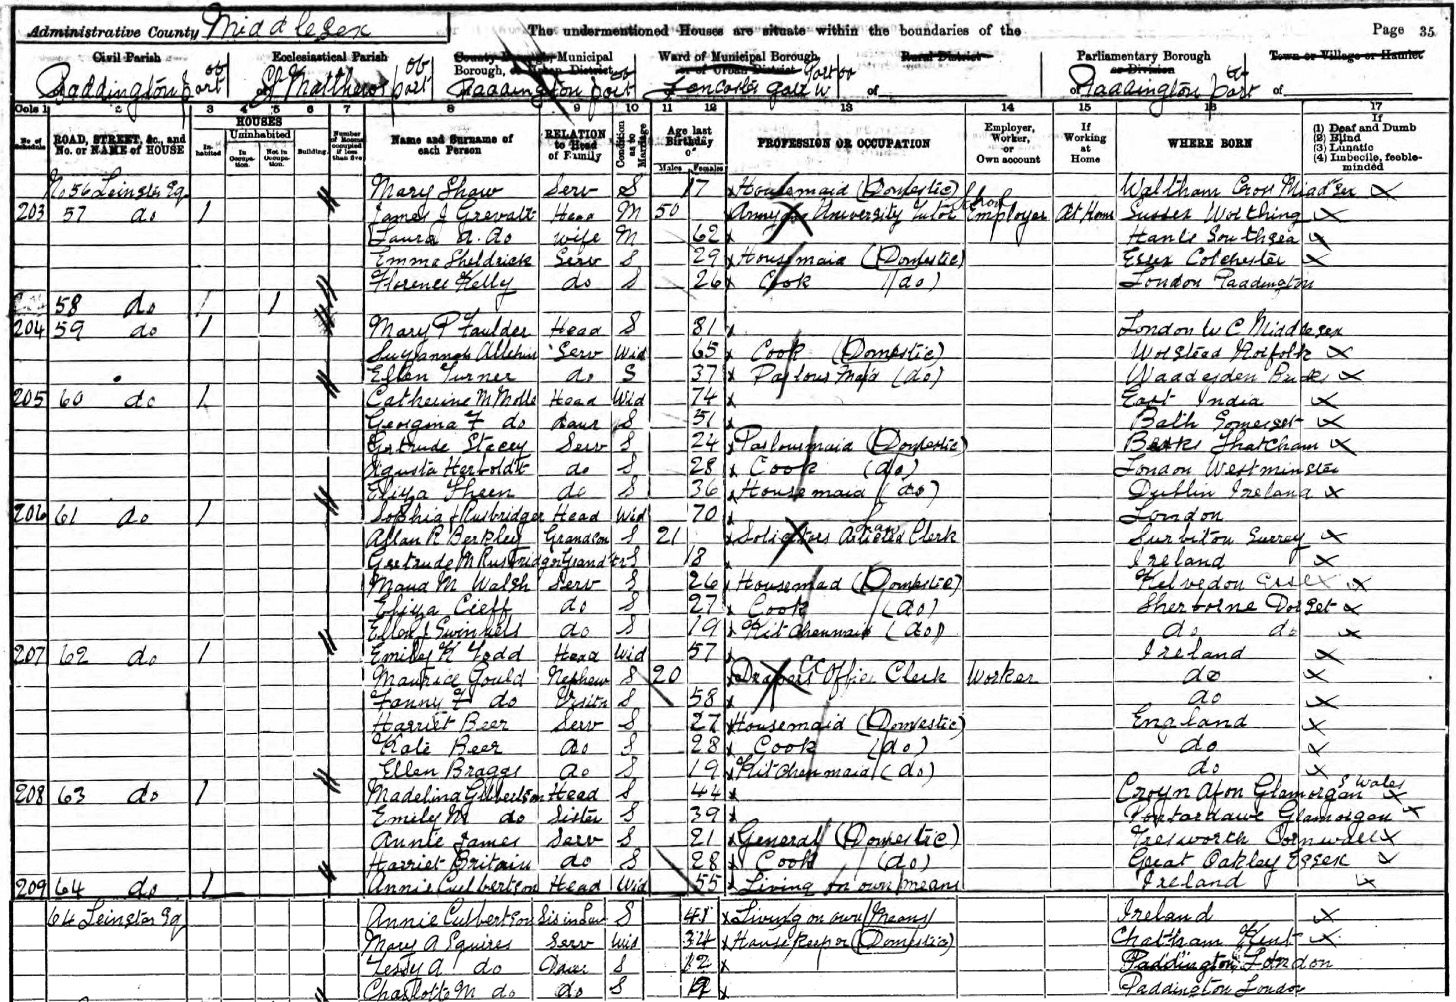 Administrative County Middlesex The undermentioned Houses are situate within the boundaries of the Page 35
Civil Parish Ecclesiastical Parish County Borough, Municipal Borough, or Urban District Ward of Municipal Borough or of Urban District Rural District Parliamentary Borough or Division Town or Village or Hamlet
Paddington part of St Matthews part of Paddington part of Lancaster Gate W part of of of Paddington part of of
Cols 1 2 3 4 5 6 7 8 9 10 11 12 13 14 15 16 17
No of Schedule ROAD, STREET, &c., and No. or NAME of HOUSE HOUSES Inhabited Uninhabited In Occupation. Not in Occupation. Building Number of Rooms occupied if less than five Name and Surname of each Person RELATION to Head of Family Condition as to Marriage Age last Birthday of Males Females PROFESSION OR OCCUPATION Employer, Worker, or Own account If Working at Home WHERE BORN If (1) Deaf and Dumb (2) Blind (3) Lunatic (4) Imbecile, feeble-minded
No 56 Leinster Sq Mary Shaw Serv S 17 Housemaid (Domestic) Waltham Cross Middsex
203 57 do 1 James J Head M 50 Army & University Tutor School Employer At Home Sussex Worthing
Laura A. do wife M 62 Hants Southsea
Emma Sheldrick Serv S 29 Housemaid (Domestic) Essex Colchester
Florence Kelly do S 26 Cook (do) London Paddington
58 do 1 1
204 59 do 1 Mary P Faulder Head S 81 London W C Middlesex
Suzannah Serv Wid 65 Cook (Domestic) Worstead Norfolk
Ellen Turner do S 37 Parlour Maid (do) Waddesden Bucks
205 60 do 1 Catherine M Head Wid 74 East India
Georgina F do Daur S 51 Bath Somerset
Gertrude Stacey Serv S 24 Parlourmaid (Domestic) Berks Thatcham
Agusta Herboldt do S 28 Cook (do) London Westminster
Eliza Sheen do S 36 Housemaid (do) Dublin Ireland
206 61 do 1 Sophia J Rusbridger Head Wid 70 London
Allan R Berkley Grandson S 21 Solicitors Articled Clerk Law Surbiton Surrey
Gertrude M Rusbridger Grand dr S 18 Ireland
Maud M Walsh Serv S 26 Housemaid (Domestic) Kelvedon Essex
Eliza do S 27 Cook (do) Sherborne Dorset
Ellen J Swinnels do S 19 Kitchenmaid (do) do do
207 62 do 1 Emily K Todd Head Wid 57 Ireland
Maurice Gould Nephew S 20 Drapers Office Clerk Worker do
Fanny F do Visitor S 58 do
Harriet Beer Serv S 27 Housemaid (Domestic) England
Kate Beer do S 28 Cook (do) do
Ellen Braggs do S 19 Kitchenmaid (do) do
208 63 do 1 Madelina Gilbertson Head S 44 Afon Glamorgan S Wales
Emily M do Sister S 39 Pontardawe Glamorgan
Annie James Serv S 21 General (Domestic) Cornwall
Harriet Britain do S 28 Cook (do) Great Oakley Essex
209 64 do 1 Annie Culbertson Head Wid 55 Living on own means Ireland
64 Leinster Sq Annie Culbertson Sis in law S 41 Living on own Means Ireland
Mary A Squires Serv Wid 34 Housekeeper (Domestic) Chatham Kent
Tessy A do Daur S 12 Paddington London
Charlotte M do do S Paddington London